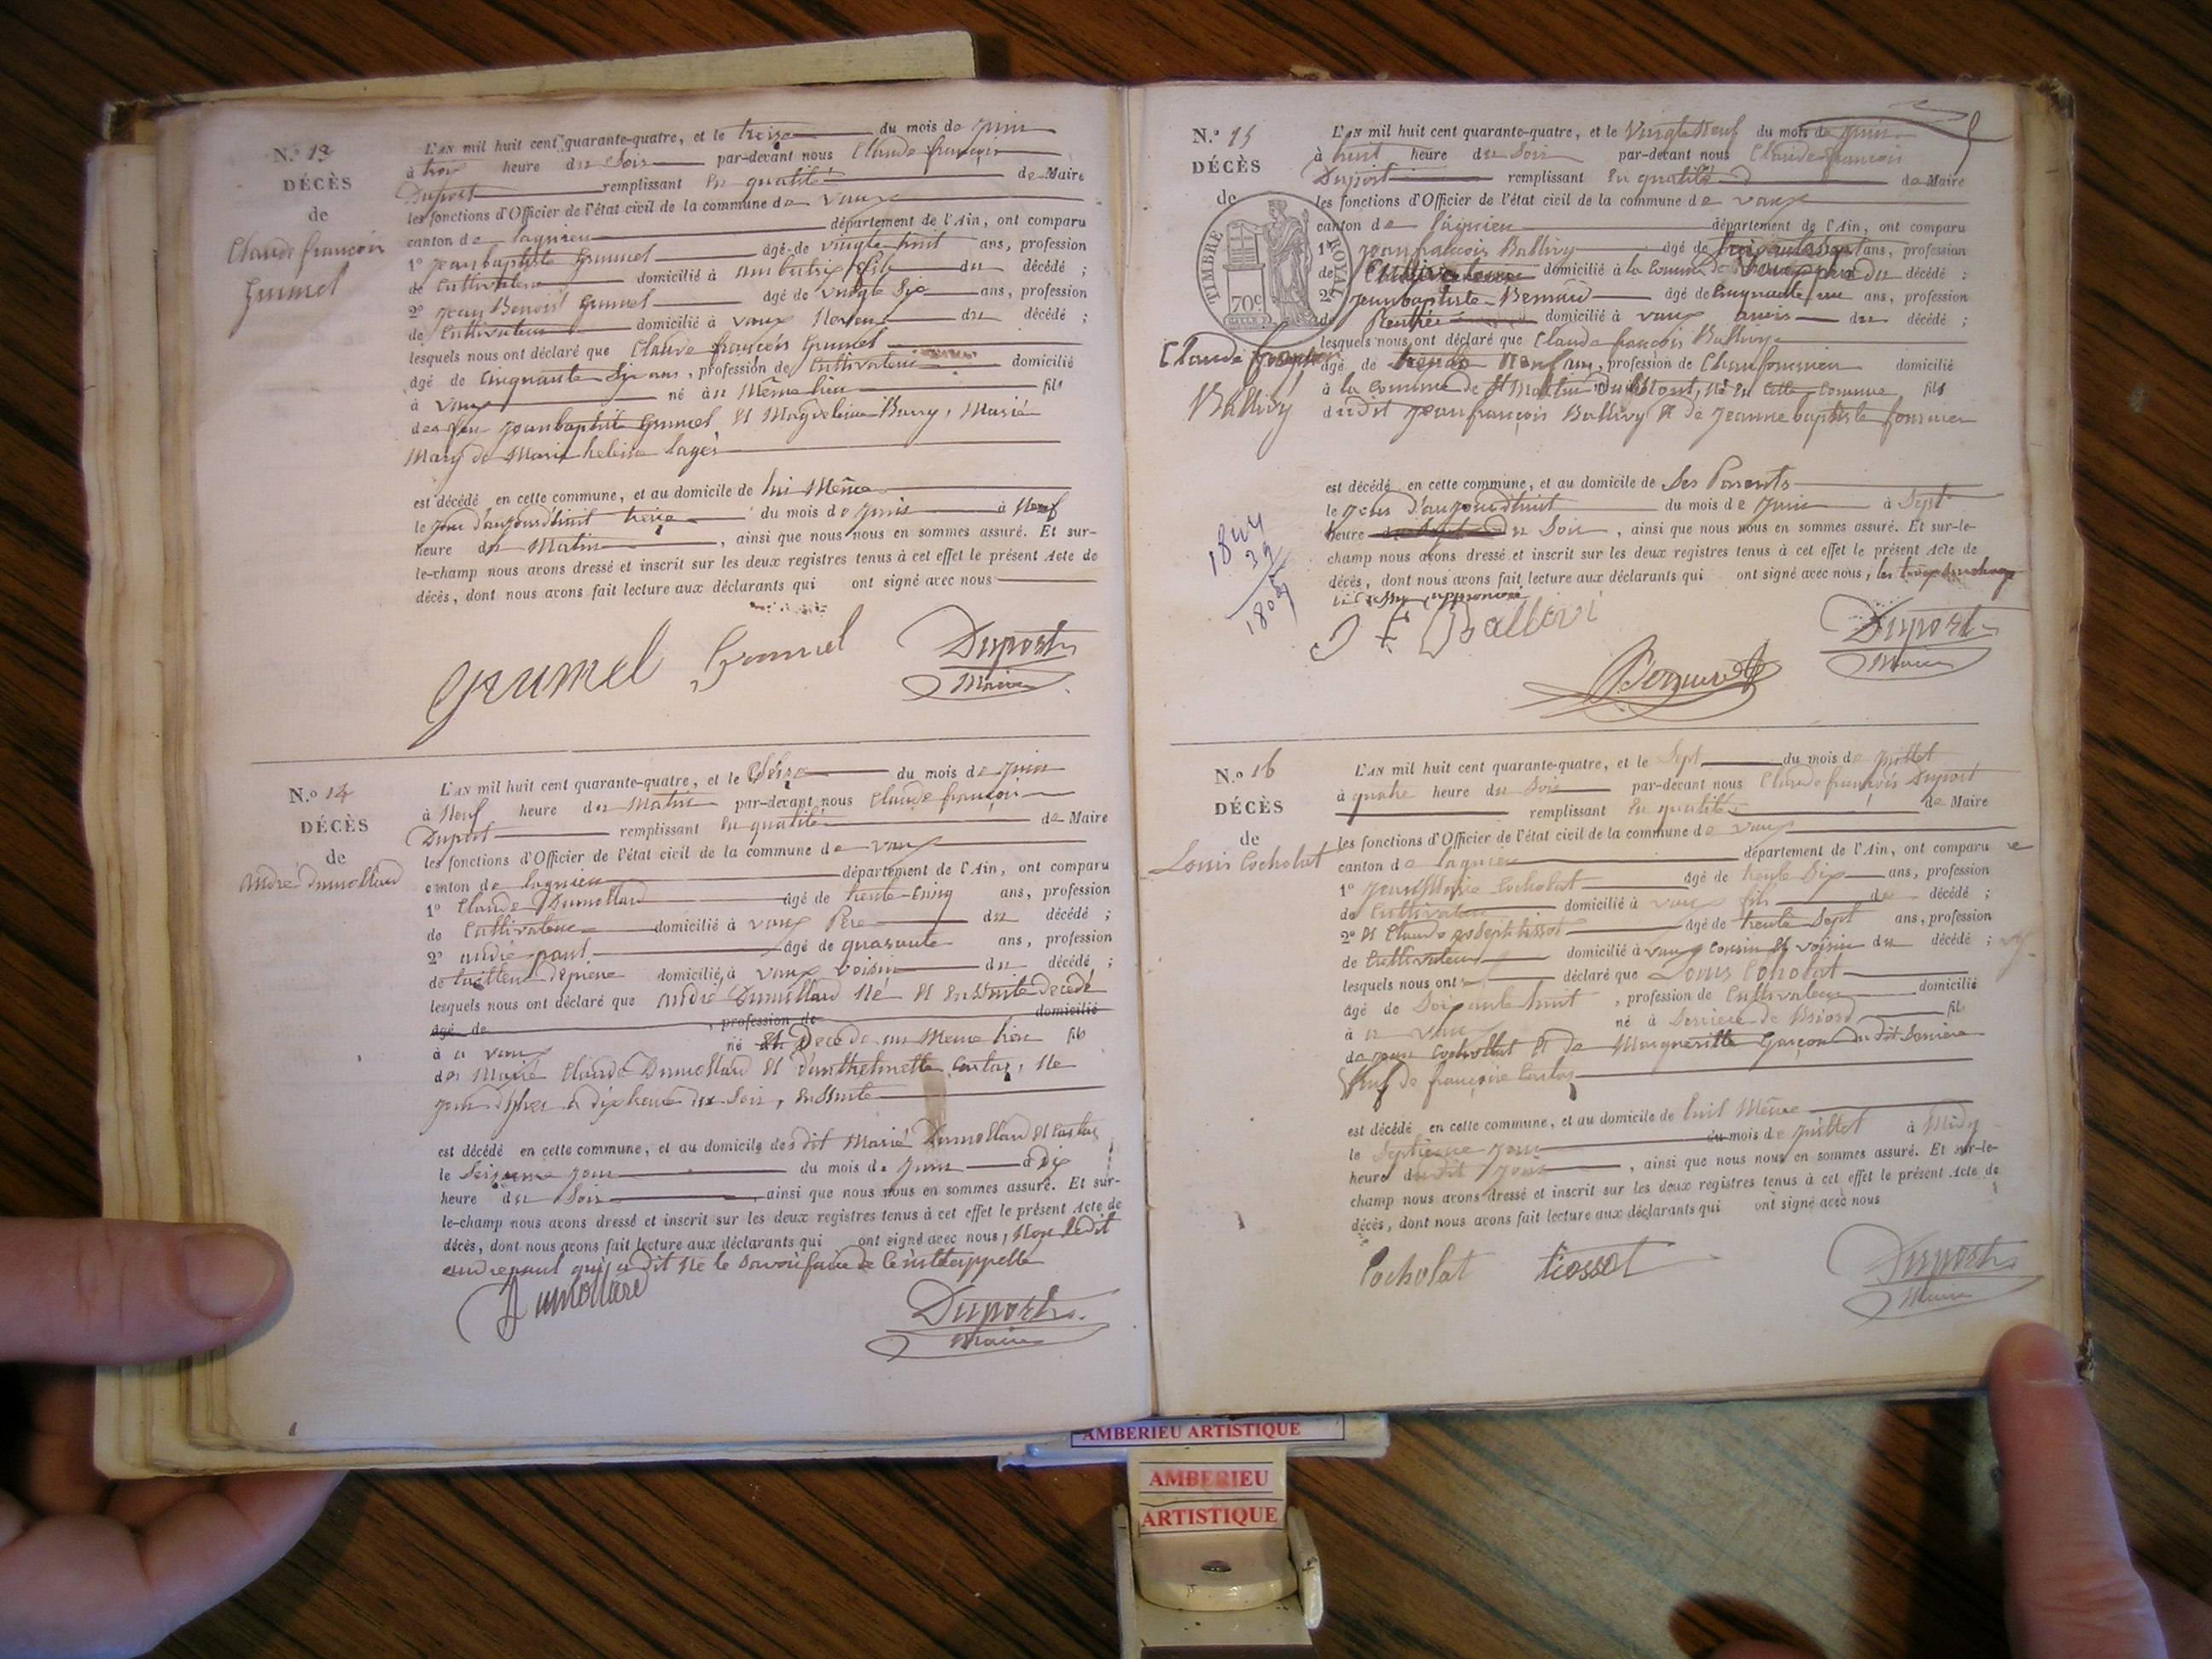 N.º 13
DÉCÈS
de
Claude françois
Grumel
L'AN mil huit cent quarante-quatre, et le treize du mois de Juin
à trois heure du Soir par-devant nous Claude françois
Duport remplissant En qualité de Maire
les fonctions d'Officier de l'état civil de la commune de vaux
canton de lagnieu département de l'Ain, ont comparu
1º Jean baptiste Grumel âgé de vingt huit ans, profession
de Cultivateur domicilié à ambutrix fils du décédé ;
2º Jean Benoit Grumel âgé de vingt Six ans, profession
de Cultivateur domicilié à vaux Neveu du décédé ;
lesquels nous ont déclaré que Claude françois Grumel
âgé de Cinquante Six ans, profession de Cultivateur domicilié
à vaux né au Même lieu fils
des feu Jean baptiste Grumel Et Magdeleine Barry, Marié
Mary de Marie heleine Lager
est décédé en cette commune, et au domicile de lui Même
le Jour d'aujourd'huit treize du mois de Juin à Neuf
heure du Matin , ainsi que nous nous en sommes assuré. Et sur-
le-champ nous avons dressé et inscrit sur les deux registres tenus à cet effet le présent Acte de
décès, dont nous avons fait lecture aux déclarants qui ont signé avec nous
Grumel Grumel Duport
Maire
N.º 14
DÉCÈS
de
André Dumollard
L'AN mil huit cent quarante-quatre, et le du mois de Juin
à Neuf heure du Matin par-devant nous Claude françois
Duport remplissant En qualité de Maire
les fonctions d'Officier de l'état civil de la commune de vaux
canton de lagnieu département de l'Ain, ont comparu
1º Claude Dumollard âgé de trente-Cinq ans, profession
de Cultivateur domicilié à vaux Père du décédé ;
2º andré paul âgé de quarante ans, profession
de tailleur de pierre domicilié à vaux voisin du décédé ;
lesquels nous ont déclaré que André Dumollard Né Et Ensuite decédé
âgé de , profession de domicilié
à a vaux né Et Decede au Meme lieu fils
des Marié Claude Dumollard Et d'anthelmette Né
jour à dix heure du Soir, Ensuite
est décédé en cette commune, et au domicile des dit Marié Dumollard Et
le Seizieme jour du mois de Juin à Dix
heure du Soir , ainsi que nous nous en sommes assuré. Et sur-
le-champ nous avons dressé et inscrit sur les deux registres tenus à cet effet le présent Acte de
décès, dont nous avons fait lecture aux déclarants qui ont signé avec nous, Non ledit
andré paul qui a dit Ne le Savoir faire de
Dumollard Duport
Maire
N.º 15
DÉCÈS
de
TIMBRE ROYAL
70c
Claude françois
Ballivy
L'AN mil huit cent quarante-quatre, et le Vingt Neuf du mois de Juin
à huit heure du Soir par-devant nous Claude françois
Duport remplissant En qualité de Maire
les fonctions d'Officier de l'état civil de la commune de vaux
canton de lagnieu département de l'Ain, ont comparu
1º Jean françois Ballivy âgé de ans, profession
de Cultivateur domicilié à la Commune de Vaux père du décédé ;
2º Jean baptiste Bernard âgé de Cinquante un ans, profession
de Rentier domicilié à vaux du décédé ;
lesquels nous ont déclaré que Claude françois Ballivy
âgé de trente Neuf ans, profession de Chaufournier domicilié
à la Commune de St Martin du Mont, Né En Cette Commune fils
du dit Jean françois Ballivy Et de Jeanne baptiste fournier
est décédé en cette commune, et au domicile de Ses Parents
le Jour d'aujourd'huit du mois de Juin à Sept
heure du Soir , ainsi que nous nous en sommes assuré. Et sur-le-
champ nous avons dressé et inscrit sur les deux registres tenus à cet effet le présent Acte de
décès, dont nous avons fait lecture aux déclarants qui ont signé avec nous, les
approuvé
1844
39
1805
J F Ballivi
Bernard
Duport
Maire
N.º 16
DÉCÈS
de
Louis Cocholat
L'AN mil huit cent quarante-quatre, et le Sept du mois de Juillet
à quatre heure du Soir par-devant nous Claude françois Duport
remplissant En qualité de Maire
les fonctions d'Officier de l'état civil de la commune de vaux
canton de lagnieu département de l'Ain, ont comparu
1º Jean Marie Cocholat âgé de trente Six ans, profession
de Cultivateur domicilié à vaux fils de décédé ;
2º Et Claude joseph tissot âgé de trente Sept ans, profession
de Cultivateur domicilié à vaux Cousin Et voisin du décédé ;
lesquels nous ont déclaré que Louis Coholat
âgé de Soixante huit , profession de Cultivateur domicilié
à a vaux né à Serriere de Briord fils
de Jean Cochollat Et de Margueritte Garçon du dit Serriere
Veuf de françoise
est décédé en cette commune, et au domicile de luit Même
le Septieme Jour du mois de Juillet à Midy
heure du dit Jour , ainsi que nous nous en sommes assuré. Et sur-le-
champ nous avons dressé et inscrit sur les deux registres tenus à cet effet le présent Acte de
décès, dont nous avons fait lecture aux déclarants qui ont signé avec nous
Cocholat tissot Duport
Maire
AMBERIEU ARTISTIQUE
AMBERIEU
ARTISTIQUE